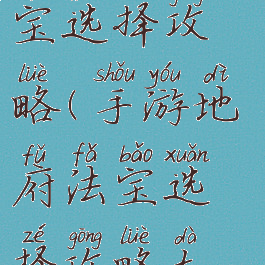 宝选择攻
lüè shǒu yóu dì
略(手游地
fǔ fǎ bǎo xuǎn
府法宝选
zé gōng lüè dà
择攻略大